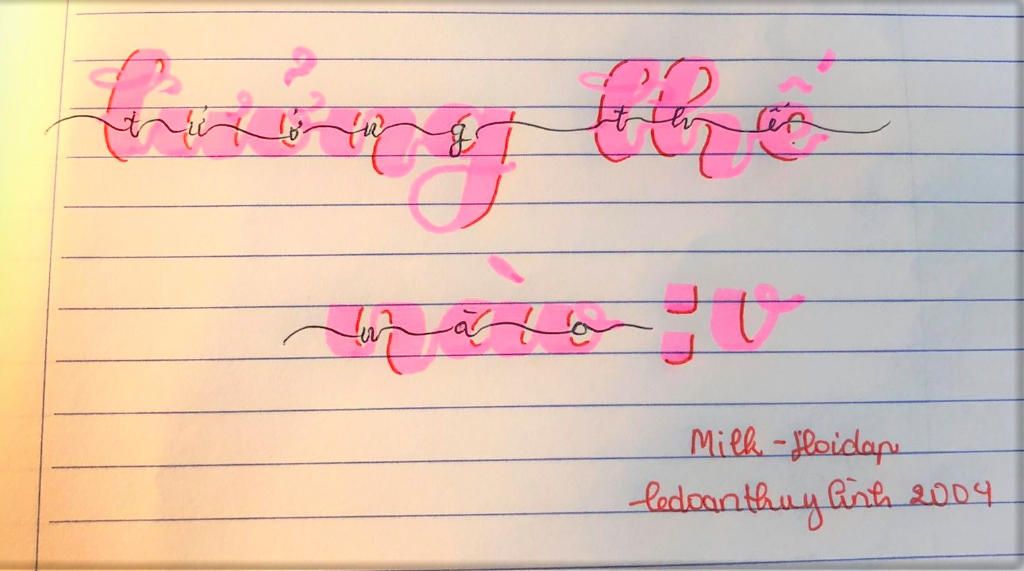 tưởng thế
nào :v
Milk - Hoidap
ledoanthuylinh 2004